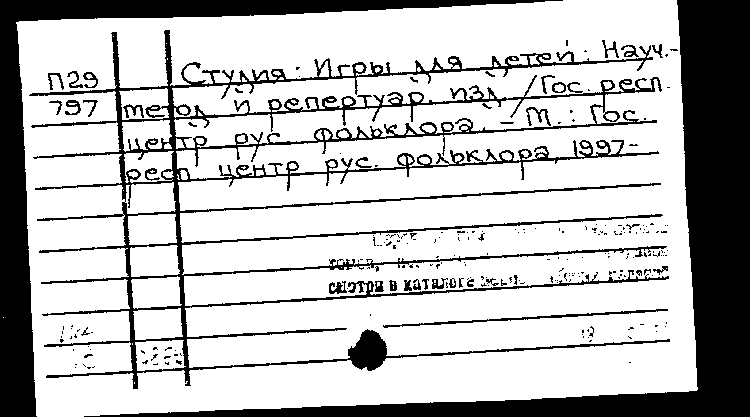 П29 Студия: Игры для детей: Науч.-
797 метод и репертуар. изд. / Гос. респ.
центр рус. фольклора. – М.: Гос.
респ центр рус. фольклора, 1997-
томов,
смотри в каталоге